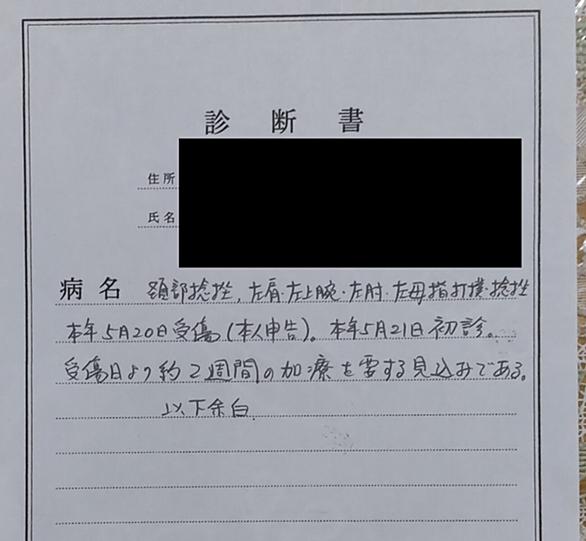 診断書
住所
氏名
病名 頚部捻挫,左肩・左上腕・左肘・左母指打撲・捻挫
本年5月20日受傷(本人申告)。本年5月21日初診。
受傷日より約2週間の加療を要する見込みである。
以下余白